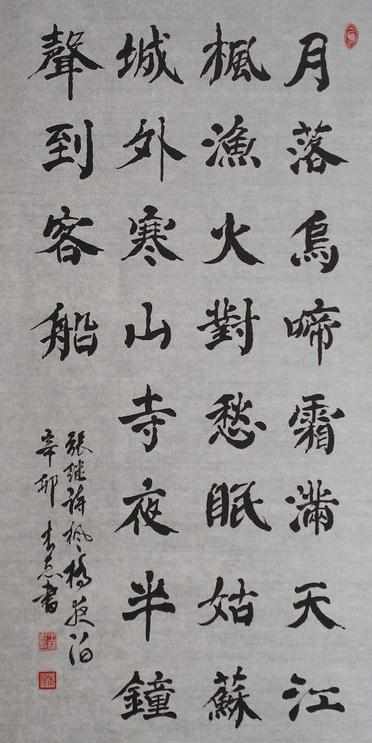 月落烏啼霜滿天江
楓漁火對愁眠姑蘇
城外寒山寺夜半鐘
聲到客船
張继詩楓橋夜泊
辛卯 书